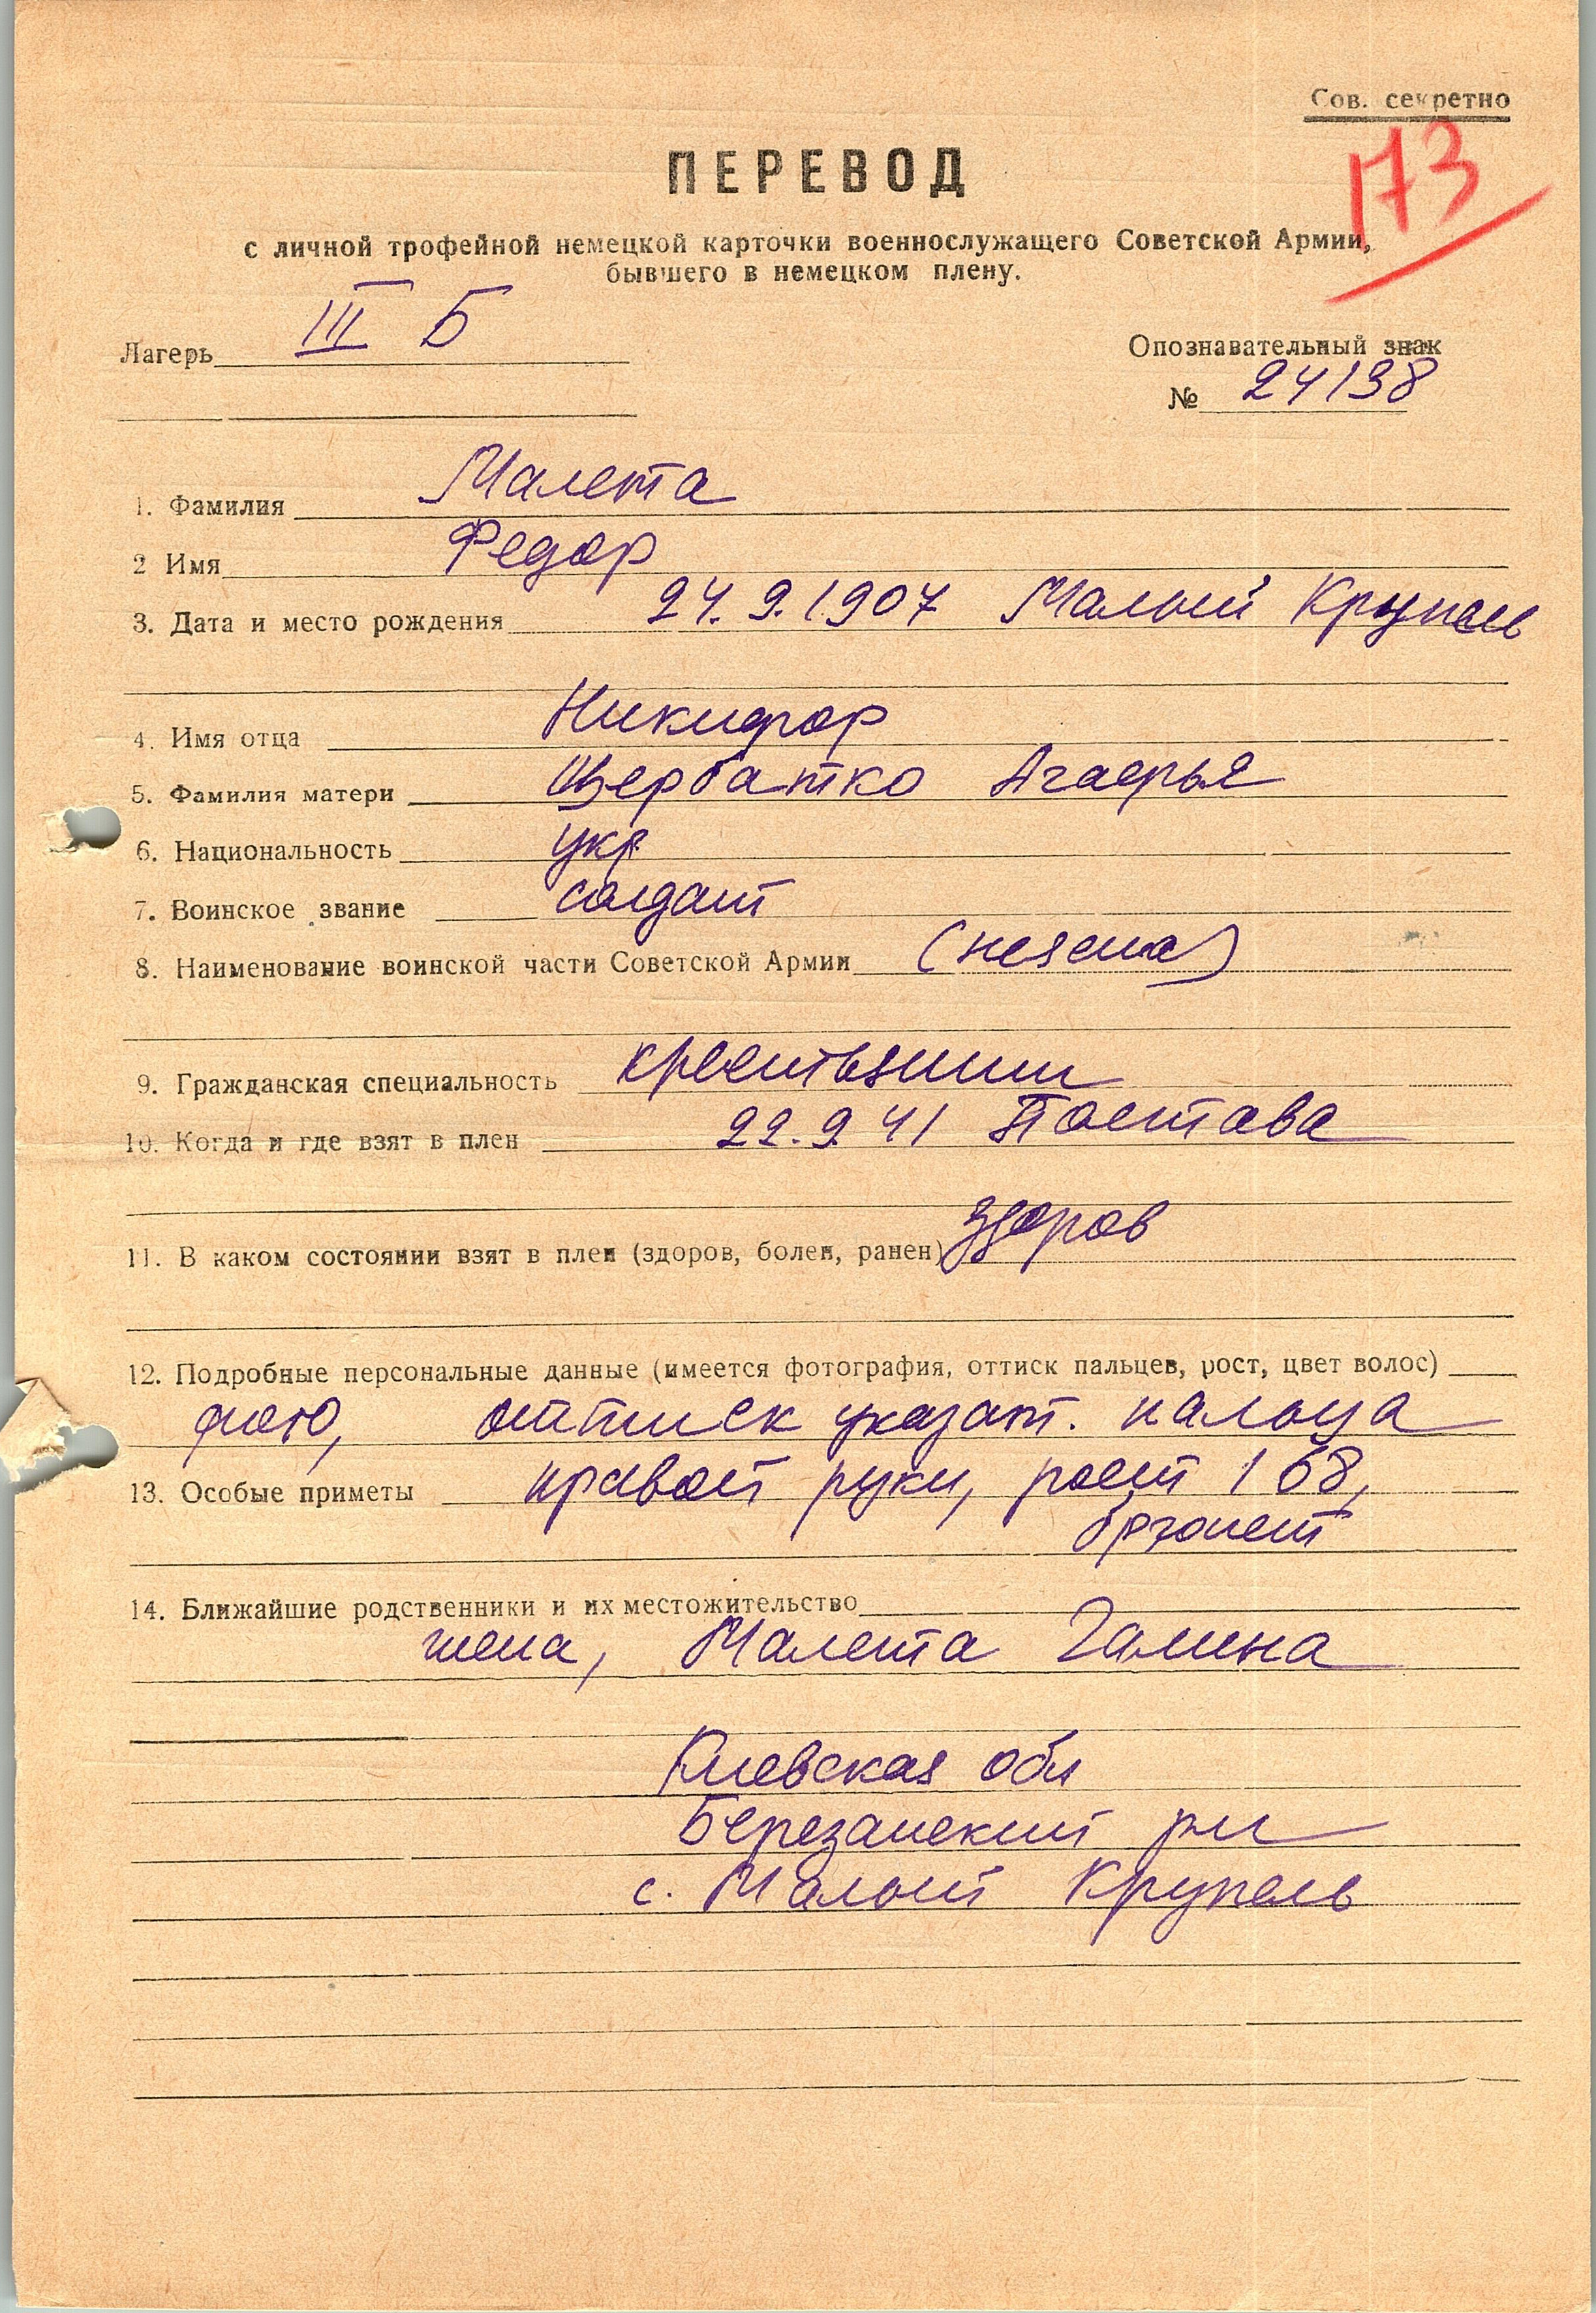 Сов. секретно
173
ПЕРЕВОД
с личной трофейной немецкой карточки военнослужащего Советской Армии,
бывшего в немецком плену.
Лагерь III Б
Опознавательный знак
№ 24138
1. Фамилия Малета
2 Имя Федор
3. Дата и место рождения 24.9.1907 Малый Крупель
4. Имя отца Никифор
5. Фамилия матери Щербатко Агафья
6. Национальность укр
7. Воинское звание солдат
8. Наименование воинской части Советской Армии (неясна)
9. Гражданская специальность крестьянин
10. Когда и где взят в плен 22.9.41 Полтава
11. В каком состоянии взят в плен (здоров, болен, ранен) здоров
12. Подробные персональные данные (имеется фотография, оттиск пальцев, рост, цвет волос)
фото, оттиск указат. пальца
13. Особые приметы правой руки, рост 168,
брюнет
14. Ближайшие родственники и их местожительство
жена, Малета Галина
Киевская обл
Березанский рн
с. Малый Крупель